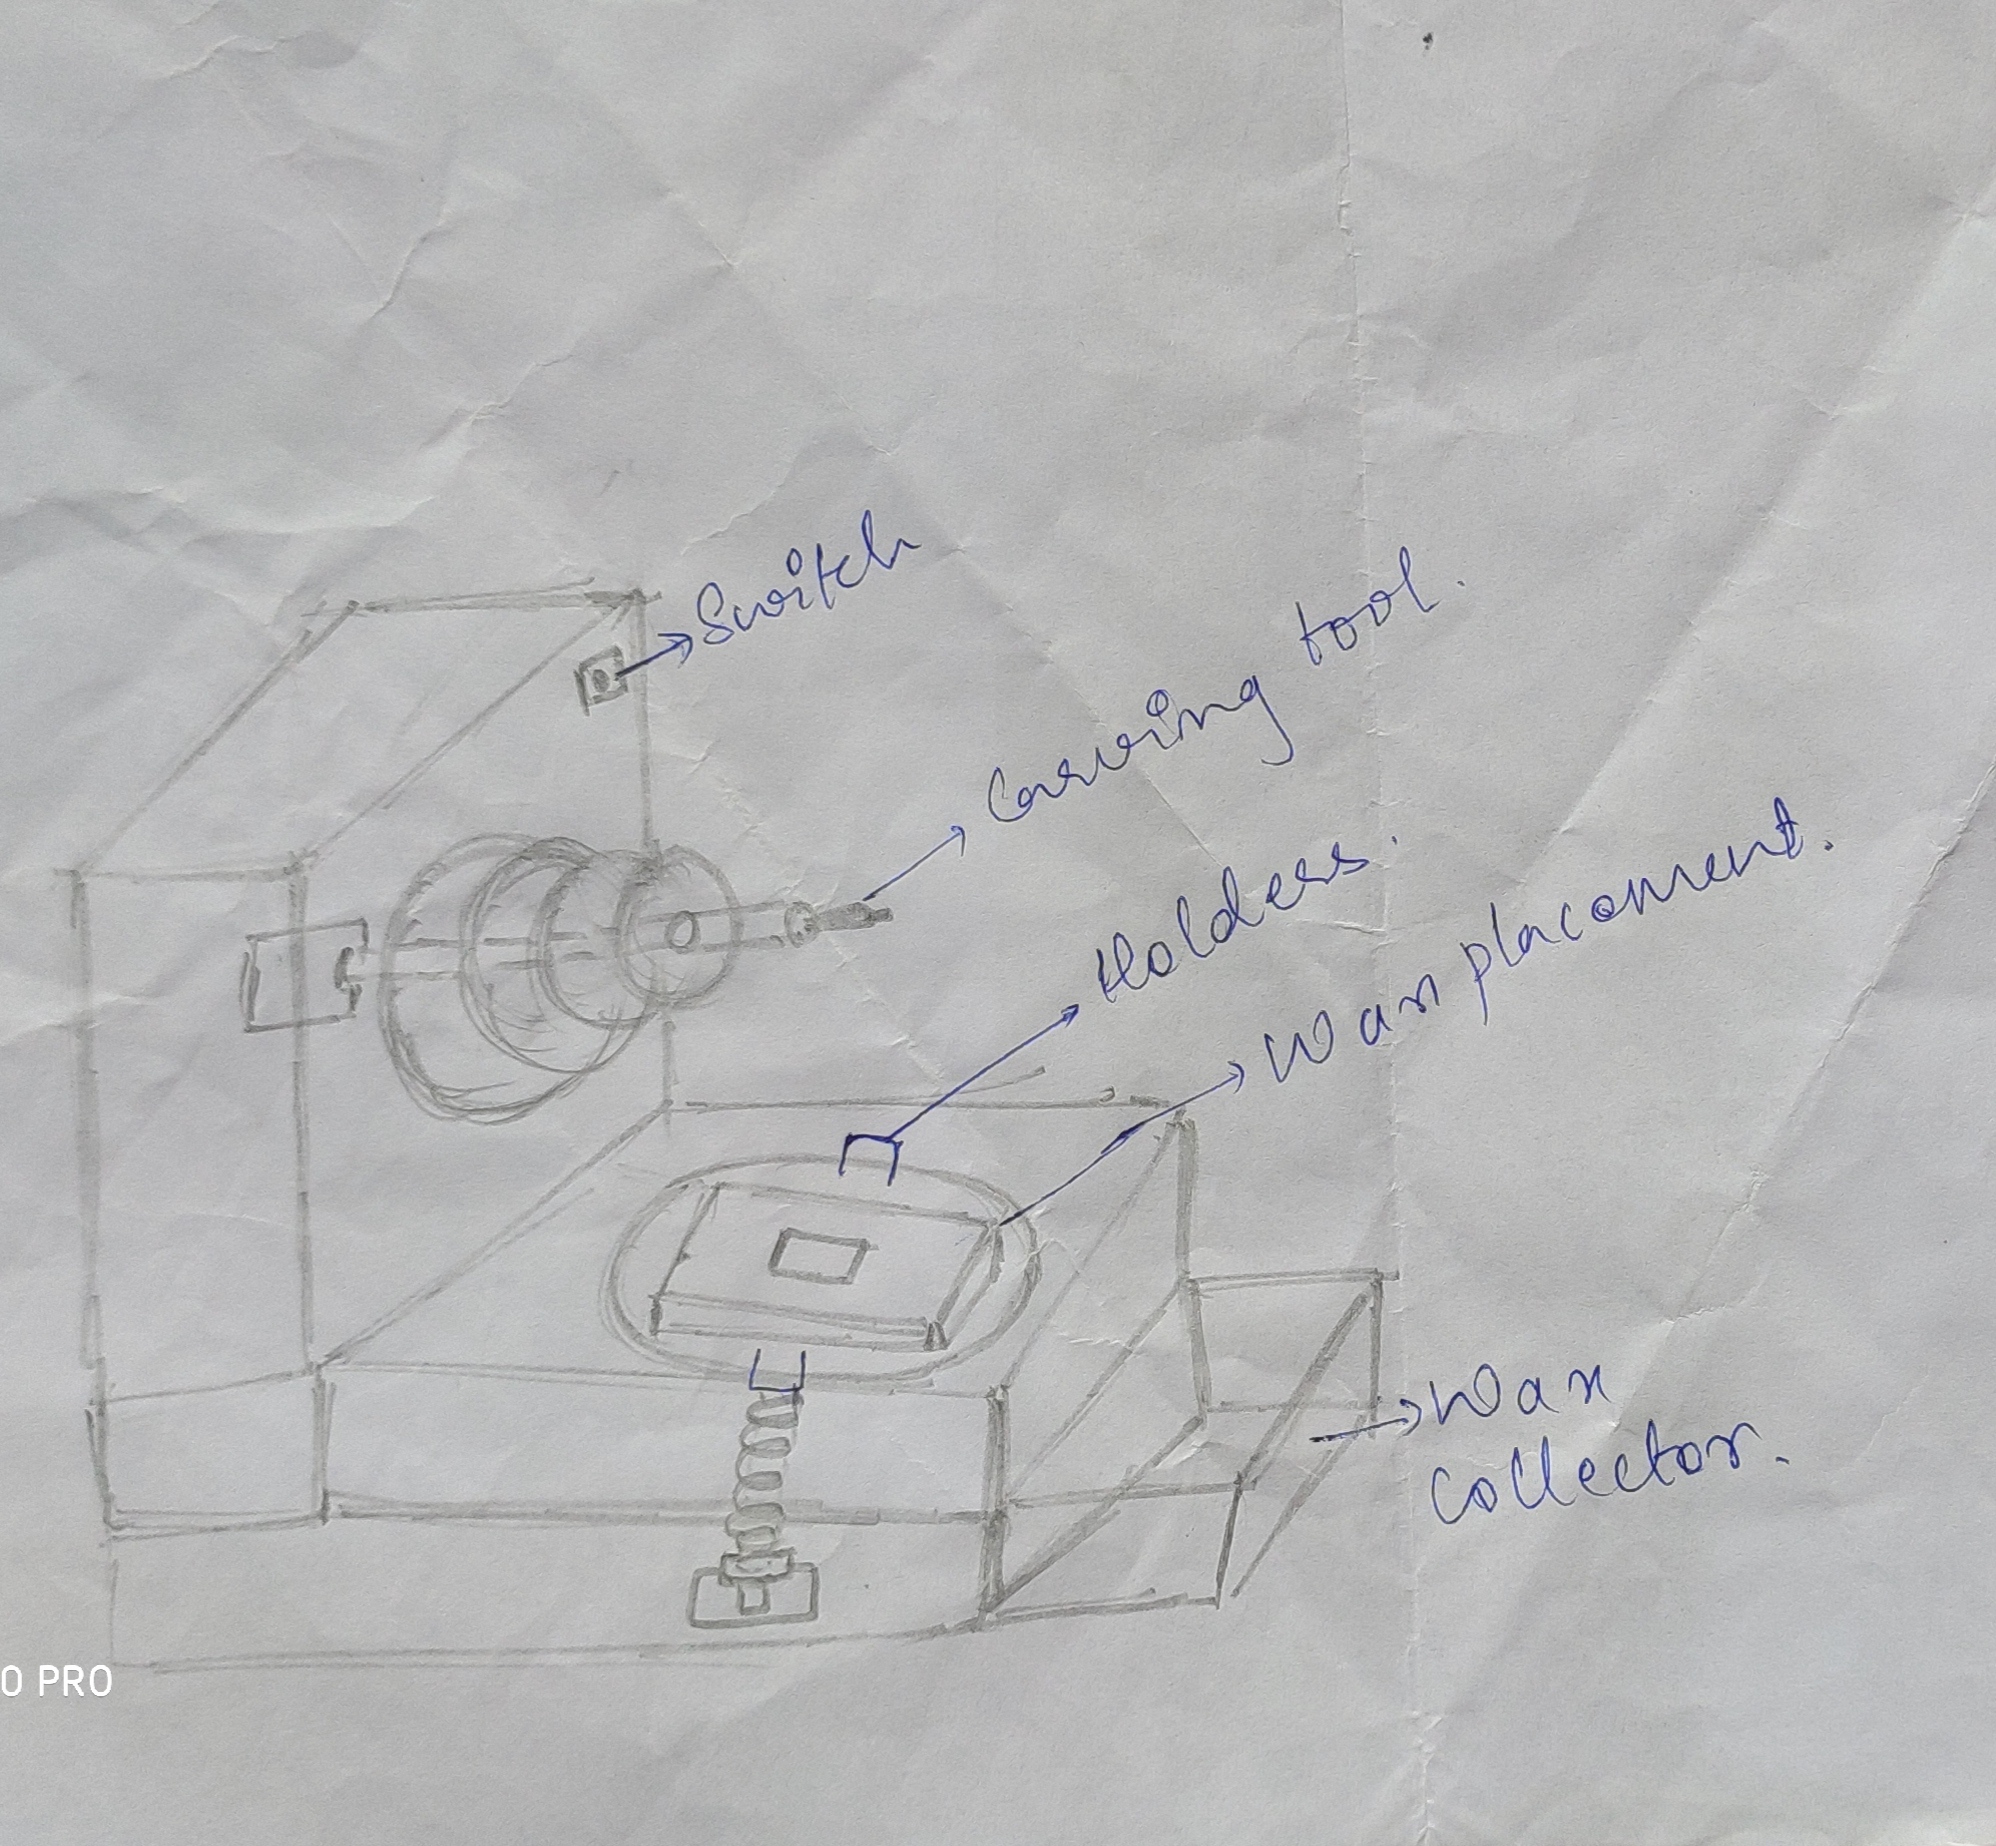 Switch
Carving tool.
Holders.
Wax placement.
Wax
collector.
O PRO